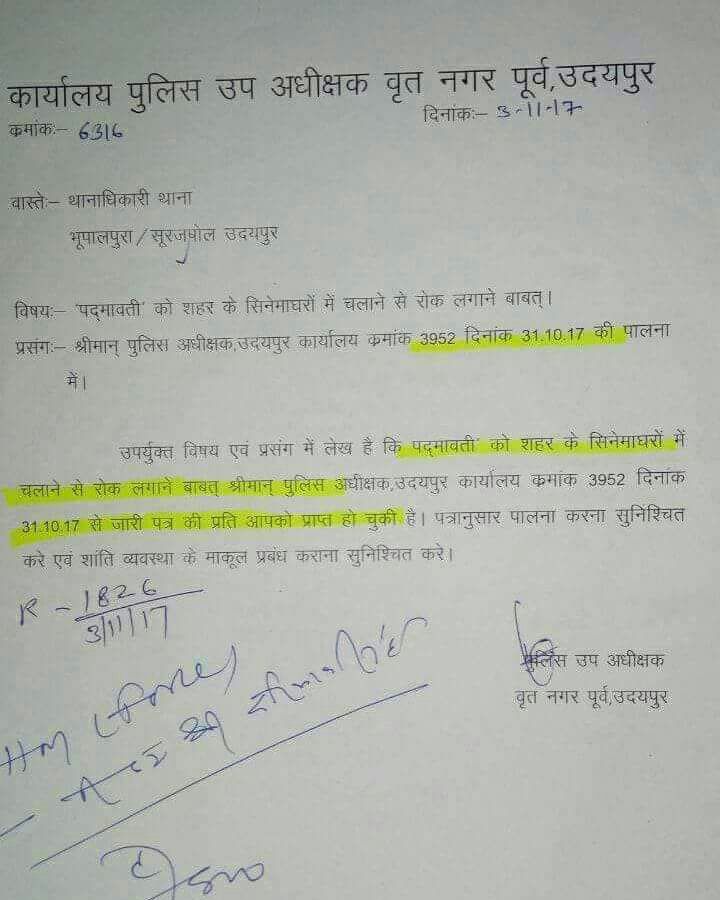 कार्यालय पुलिस उप अधीक्षक वृत नगर पूर्व,उदयपुर
कमांकः– 6316
दिनांकः– 3-11-17
वास्तेः– थानाधिकारी थाना
भूपालपुरा/सूरजपोल उदयपुर
विषयः– 'पद्मावती' को शहर के सिनेमाघरों में चलाने से रोक लगाने बाबत्।
प्रसंगः– श्रीमान् पुलिस अधीक्षक,उदयपुर कार्यालय कमांक 3952 दिनांक 31.10.17 की पालना
में।
उपर्युक्त विषय एवं प्रसंग में लेख है कि पद्मावती' को शहर के सिनेमाघरों में
चलाने से रोक लगाने बाबत् श्रीमान् पुलिस अधीक्षक,उदयपुर कार्यालय कमांक 3952 दिनांक
31.10.17 से जारी पत्र की प्रति आपको प्राप्त हो चुकी है। पत्रानुसार पालना करना सुनिश्चित
करे एवं शांति व्यवस्था के माकूल प्रबंध कराना सुनिश्चित करे।
R – 1826
3/11/17
पुलिस उप अधीक्षक
वृत नगर पूर्व,उदयपुर
HM